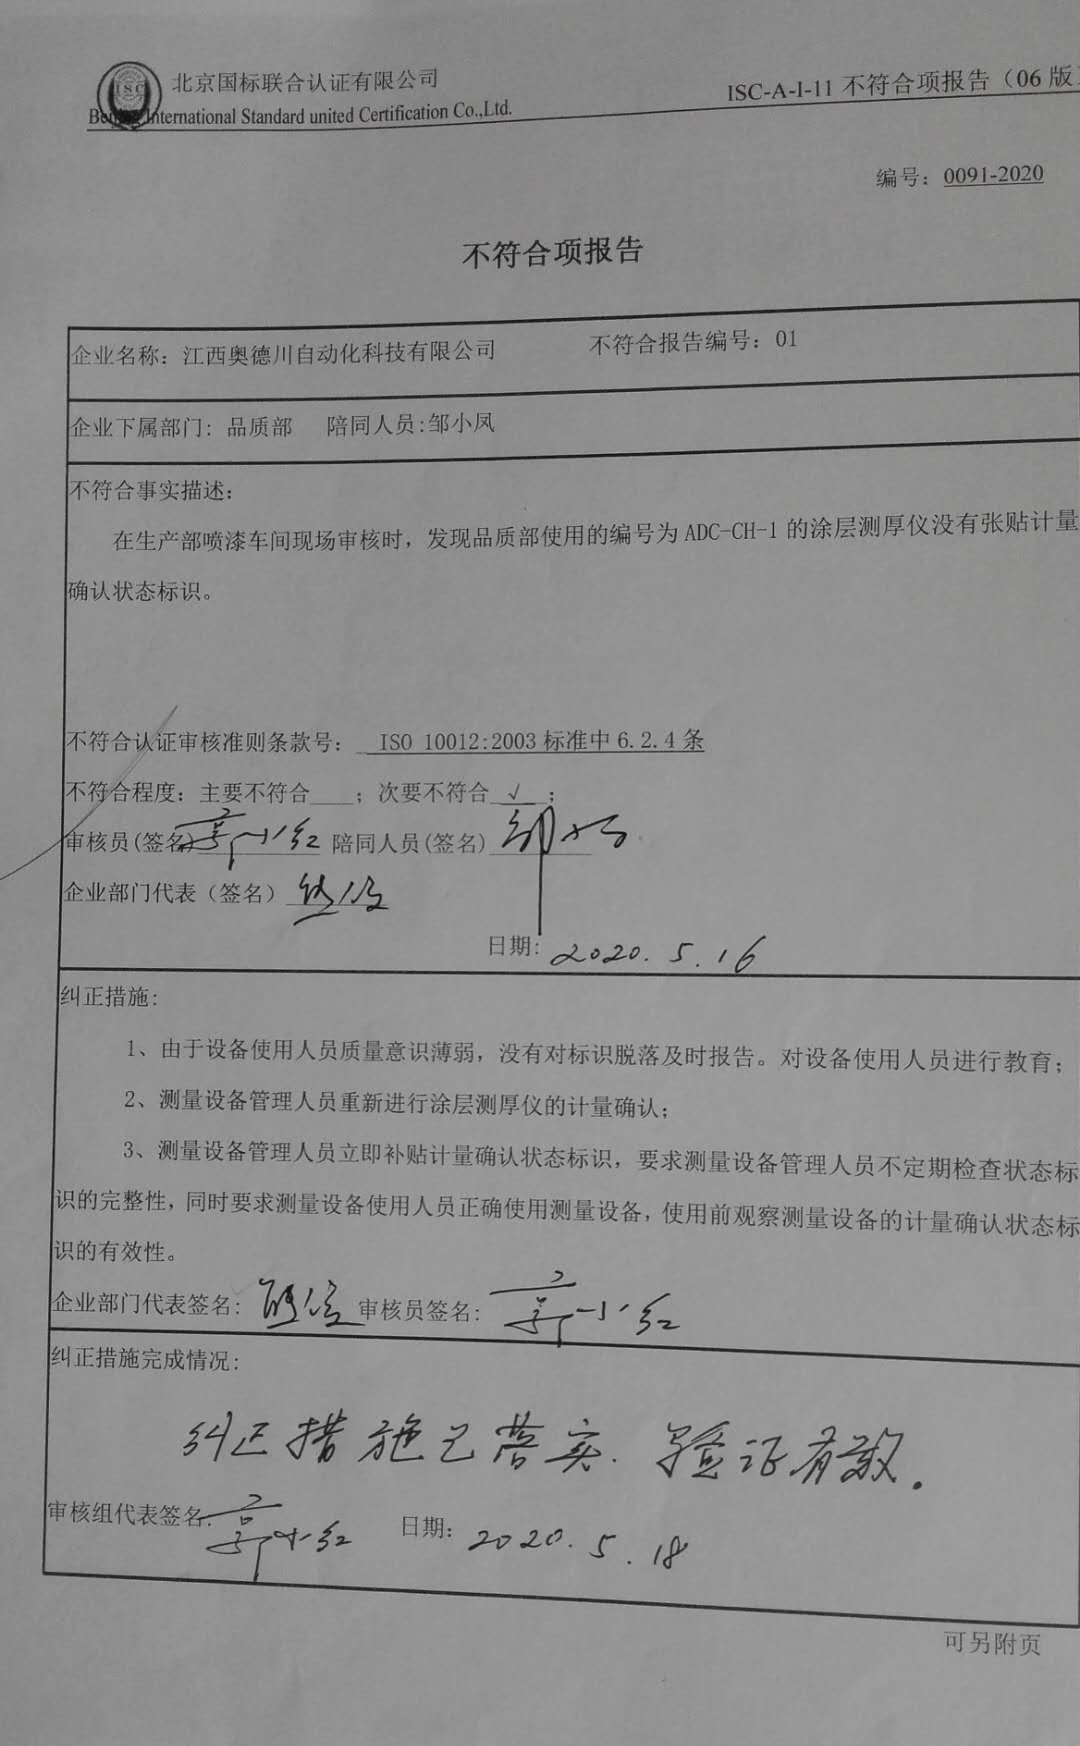 北京国标联合认证有限公司
Beijing International Standard united Certification Co.,Ltd.
ISC-A-I-11 不符合项报告（06 版）
ISC
编号：0091-2020
不符合项报告
企业名称：江西奥德川自动化科技有限公司 不符合报告编号：01
企业下属部门：品质部 陪同人员:邹小凤
不符合事实描述：
在生产部喷漆车间现场审核时，发现品质部使用的编号为 ADC-CH-1 的涂层测厚仪没有张贴计量
确认状态标识。
不符合认证审核准则条款号： ISO 10012:2003 标准中 6.2.4 条
不符合程度：主要不符合 ；次要不符合 √ ；
审核员(签名) 郭小红 陪同人员(签名)
企业部门代表（签名）
日期: 2020.5.16
纠正措施:
1、由于设备使用人员质量意识薄弱，没有对标识脱落及时报告。对设备使用人员进行教育；
2、测量设备管理人员重新进行涂层测厚仪的计量确认；
3、测量设备管理人员立即补贴计量确认状态标识，要求测量设备管理人员不定期检查状态标
识的完整性，同时要求测量设备使用人员正确使用测量设备，使用前观察测量设备的计量确认状态标
识的有效性。
企业部门代表签名: 审核员签名: 郭小红
纠正措施完成情况:
纠正措施已落实. 验证有效.
审核组代表签名: 郭小红 日期: 2020.5.18
可另附页